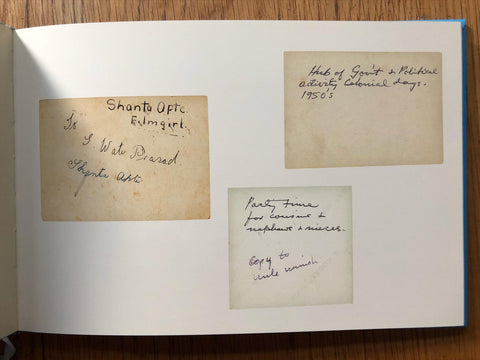 Shanta Apte.
Filmgirl.
To
S. Prasad
Shanta Apte.
Hub of Gov't & Political
activity Colonial days.
1950's
Party time
for cousins &
nephews & nieces.
Copy to
uncle